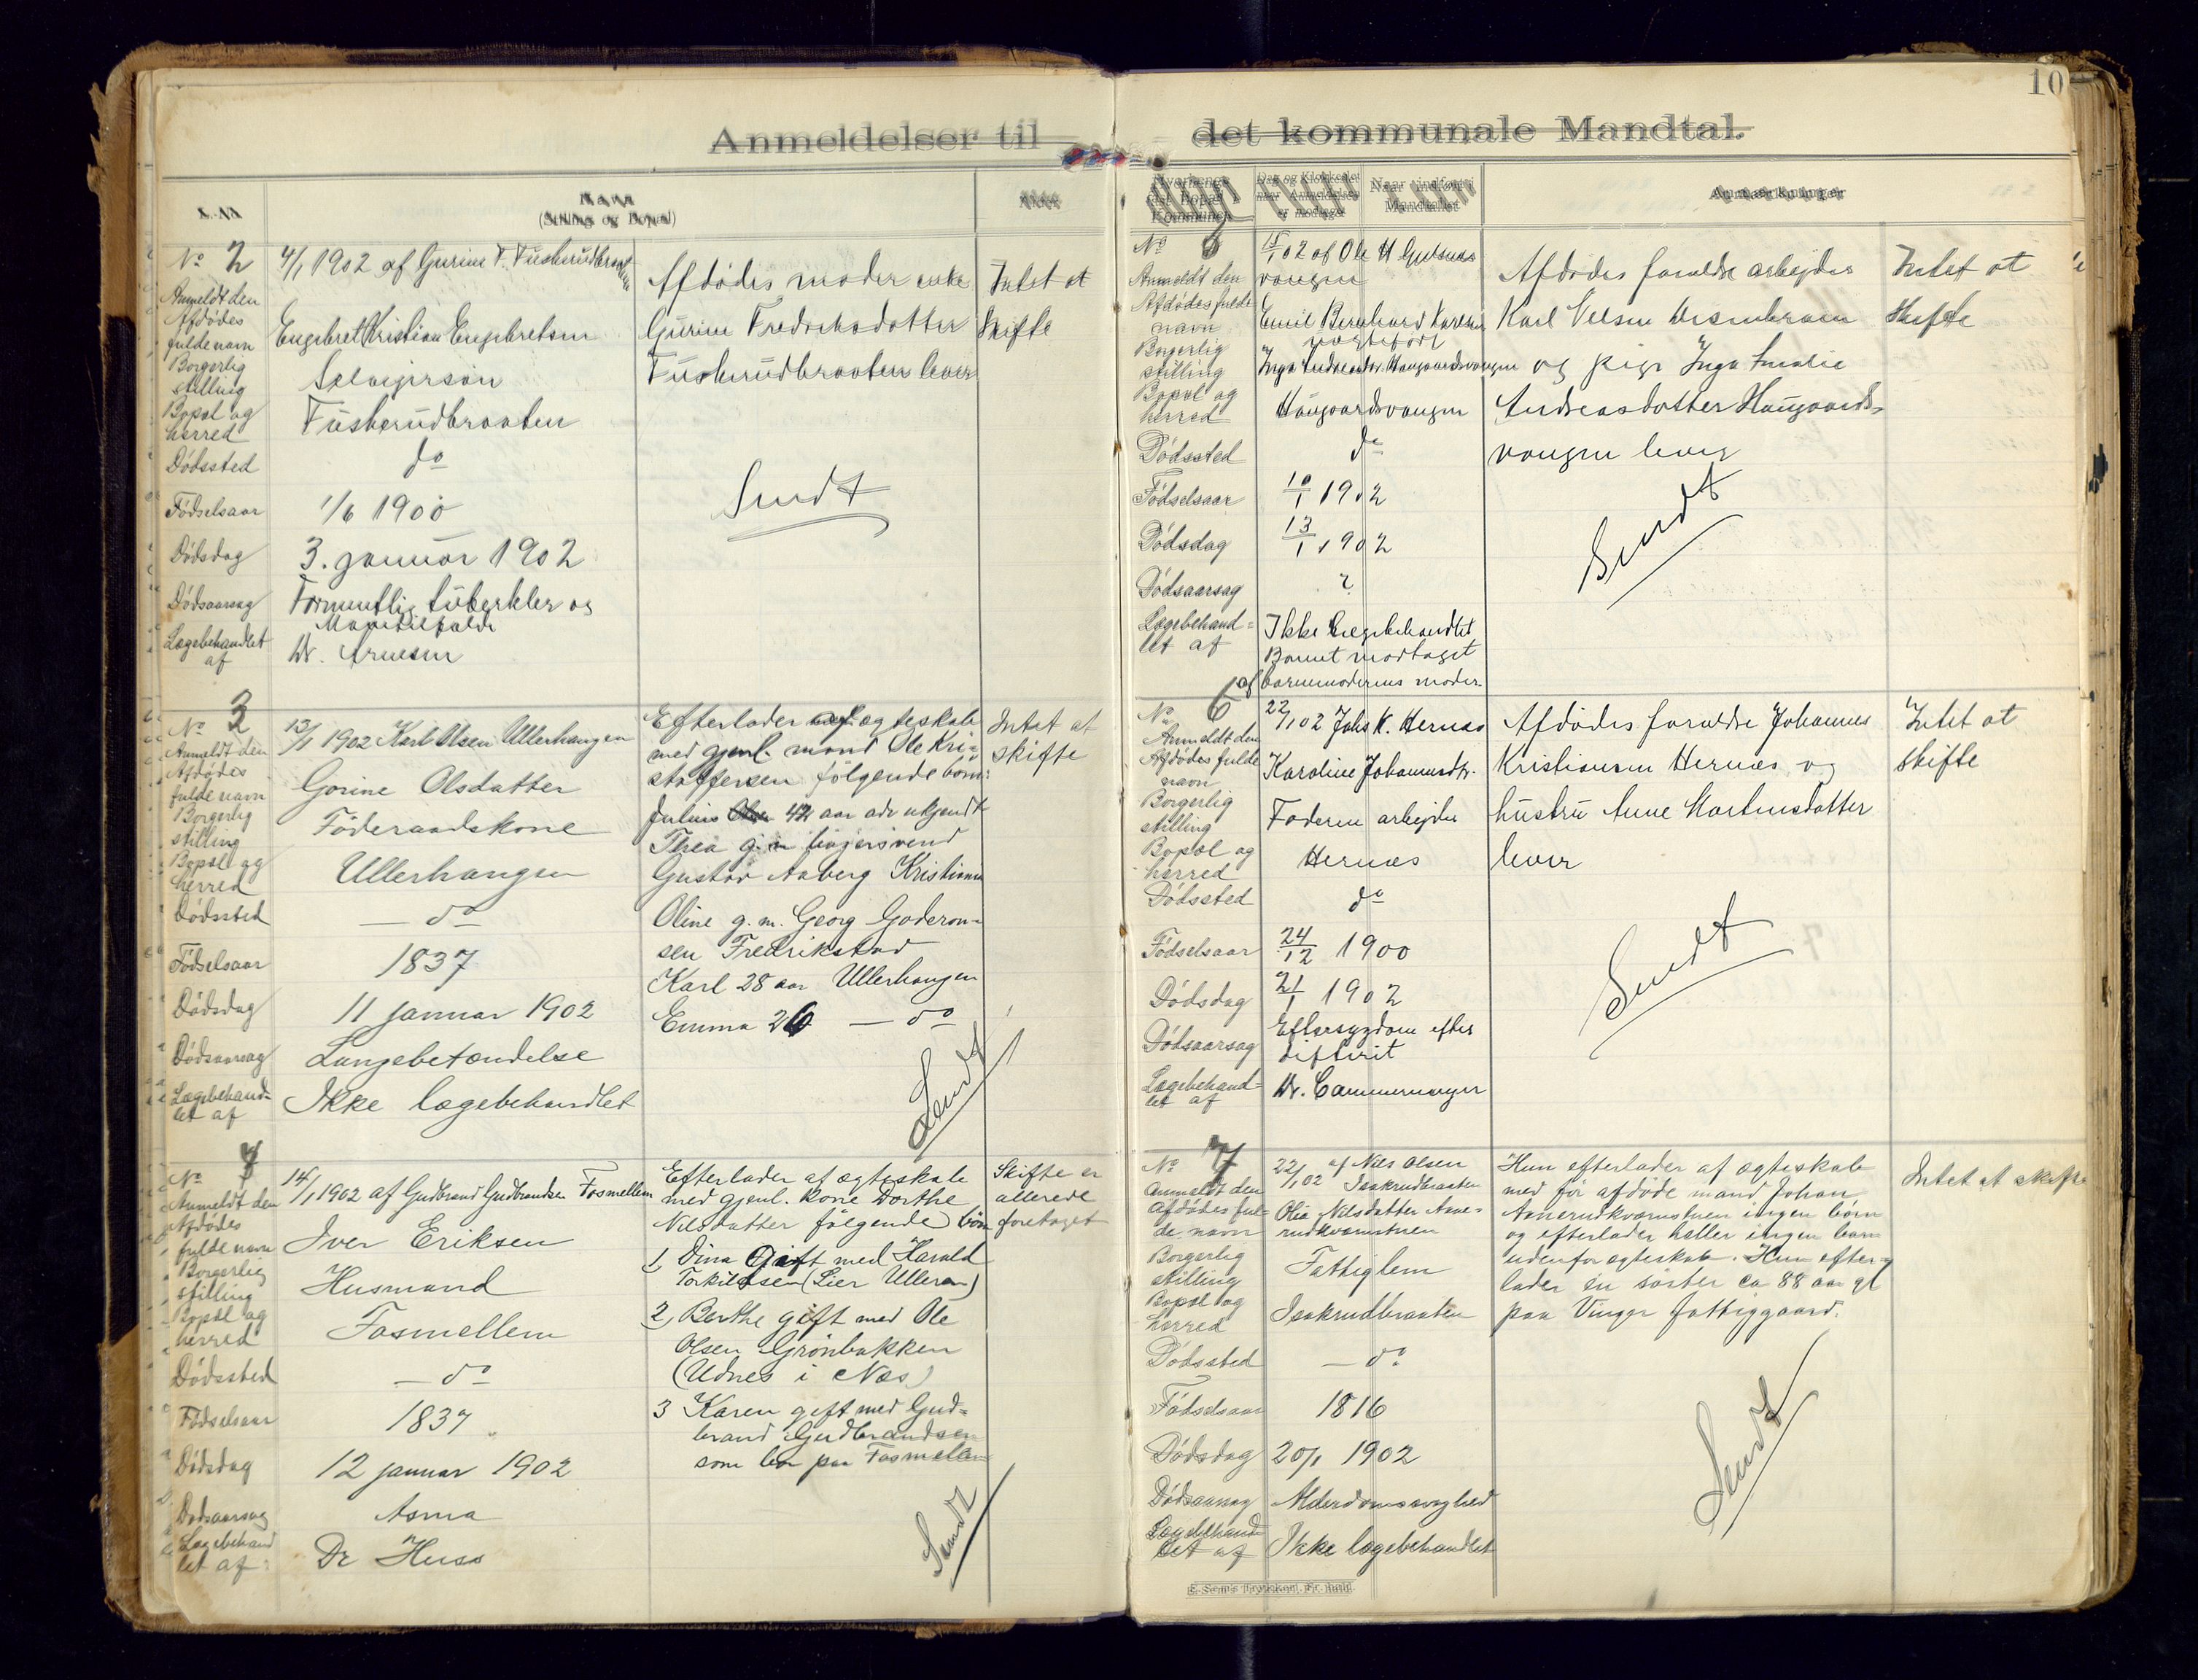 10
Anmeldelser til det kommunale Mandtal.
Navn
(Stilling og Bopæl)
Dag og Klokkeslet
naar Anmeldelsen
er modtaget
Naar indført i
Mandtallet
Anmærkninger
No 2
4/1 1902 af Gurine F. Fuskerudbraaten
Anmeldt den
Afdødes
fulde navn
Engebret Kristian Engebretsen
Borgerlig
stilling
Selveiersøn
Bopæl og
herred
Fuskerudbraaten
Dødssted
do
Fødselsaar
1/6 1900
Dødsdag
3. januar 1902
Dødsaarsag
Formentlig tuberkler og
Lægebehandlet
af
Dr. Arnesen
Afdødes moder enke
Gurine Fredriksdatter
Fuskerudbraaten lever
Sendt
Intet at
Skifte
No 3
13/1 1902 Karl Olsen Ullerhaugen
Anmeldt den
Afdødes
fulde navn
Gorine Olsdatter
Borgerlig
stilling
Føderaadskone
Bopæl og
herred
Ullerhaugen
Dødssted
— do
Fødselsaar
1837
Dødsdag
11 januar 1902
Dødsaarsag
Lungebetændelse
Lægebehand-
let af
Ikke lægebehandlet
Efterlader af ægteskab
med gjenl. mand Ole Kri-
stoffersen følgende børn:
Julius 42 aar adr ukjendt
Thea g. m.
Gustav Aaberg Kristiania
Oline g. m. Georg Goderon-
sen Fredrikstad
Karl 28 aar Ullerhaugen
Emma 26 — do
Sendt
Intet at
skifte
No 4
14/1 1902 af Gudbrand Gudbrandsen Fosmellem
Anmeldt den
Afdødes
fulde navn
Iver Eriksen
Borgerlig
stilling
Husmand
Bopæl og
herred
Fosmellem
Dødssted
— do
Fødselsaar
1837
Dødsdag
12 januar 1902
Dødsaarsag
Asma
Lægebehand
let af:
Dr Huss
Efterlader af ægteskab
med gjenl. kone Dorthe
Nilsdatter følgende børn
1, Dina Gift med Harald
Torkildsen (Lier Ulleren)
2, Berthe gift med Ole
Olsen Grønbakken
(Udnes i Næs)
3 Karen gift med Gud-
brand Gudbrandsen
som bor paa Fosmellem
Sendt
Skifte er
allerede
foretaget
No 5
15/1 02 af Ole H
Anmeldt den
vangen
Afdødes fulde
navn
Emil Bernhard Karlsen
uægtefødt
Borgerlig
stilling
Inga Andreasdtr. Haugaardsvangen
Bopæl og
herred
Haugaardsvangen
Dødssted
do
Fødselsaar
10/1 1902
Dødsdag
13/1 1902
Dødsaarsag
?
Lægebehand-
let af
Ikke lægebehandlet
Barnet modtaget
af barnemoderens moder.
Afdødes forældre arbejder
Karl
og pige Inga Amalie
Andreasdatter Haugaards-
vangen lever
Sendt
Intet at
Skifte
No 6
22/1 02 Johs K. Hernæs
Anmeldt den
Afdødes fulde
navn
Karoline Johannesdtr.
Borgerlig
stilling
Faderen arbejder
Bopæl og
herred
Hernæs
Dødssted
do
Fødselsaar
24/12 1900
Dødsdag
21/1 1902
Dødsaarsag
Eftersygdom efter
difterit
Lægebehand-
let af
Dr. Cammermeyer
Afdødes forældre Johannes
Kristiansen Hernæs og
hustru Anne Martinsdatter
lever
Sendt
Intet at
skifte
No 7
22/1 02 af Nils Olsen
Isakrudbraaten
Anmeldt den
Afdødes ful-
de navn
Olia Nilsdatter Aane-
rudkværnstuen
Borgerlig
stilling
Fattiglem
Bopæl og
herred
Isakrudbraaten
Dødssted
— do
Fødselsaar
1816
Dødsdag
20/1 1902
Dødsaarsag
Alderdomssvaghed
Lægebehand-
let af
Ikke lægebehandlet
Hun efterlader af ægteskab
med før afdøde mand Johan
Aanerudkværnstuen ingen børn
og efterlader heller ingen barn
udenfor ægteskab. Hun efter-
lader én søster ca 88 aar gl
paa Vinger fattiggaard.
Sendt
Intet at skifte
E. Sem's Trykkeri, Fr.hald.